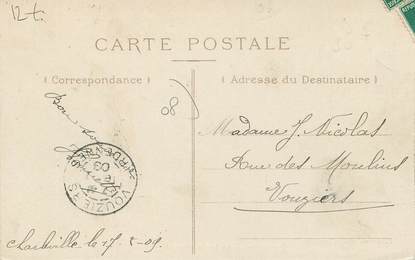 12 t.
CARTE POSTALE
( Correspondance )
( Adresse du Destinataire )
08
Bon
Madame J. Nicolas
Rue des Moulins
Vouziers
VOUZIERS
ARDENNES
09
Charleville le 17 - 5 - 09.